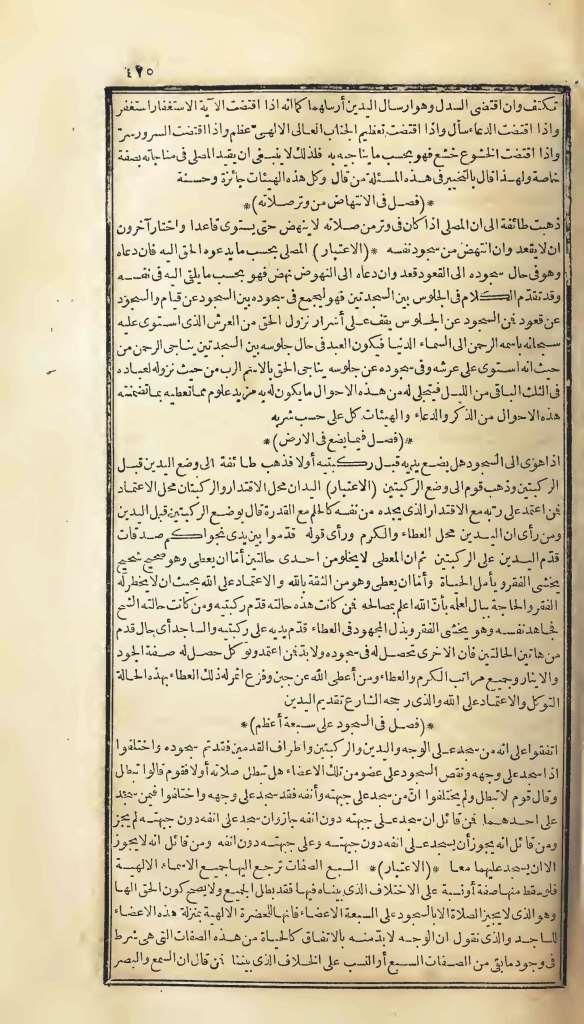 ٤٢٥
تمكتف وان اقتضى السدل وهو ارسال اليدين أرسلهما كما انه اذا اقتضت الآية الاستغفار استغفر
واذا اقتضت الدعاء سأل واذا اقتضت تعظيم الجناب العالى الالهى عظم واذا اقتضت السرور سر
واذا اقتضت الخشوع خشع فهو بحسب ما يناجيه به فلذلك لا ينبغى ان يقيد المصلى فى مناجاته بصفة
خاصة ولهذا قال بالتخيير فى هذه المسئلة من قال وكل هذه الهيئات جائزة وحسنة
*(فصل فى الانتهاض من وتر صلاته)*
ذهبت طائفة الى ان المصلى اذا كان فى وتر من صلاته لا ينهض حتى يستوى قاعدا واختار آخرون
ان لا يقعد وان انتهض من سجود نفسه *(الاعتبار) المصلى بحسب ما يدعوه الحق اليه فان دعاه
وهو فى حال سجوده الى القعود قعد وان دعاه الى النهوض نهض فهو بحسب ما يلقى اليه فى نفسه
وقد تقدّم الكلام فى الجلوس بين السجدتين فهو ليجمع فى سجوده بين السجود عن قيام والسجود
عن قعود فمن السجود عن الجلوس يقف على أسرار نزول الحق من العرش الذى استوى عليه
سبحانه باسمه الرحمن الى السماء الدنيا فيكون العبد فى حال جلوسه بين السجدتين يناجى الرحمن من
حيث انه استوى على عرشه وفى سجوده عن جلوسه يناجى الحق بالاسم الرب من حيث نزوله لعباده
فى الثلث الباقى من الليل فيتجلى له من هذه الاحوال ما يكون له به مزيد علوم مما تعطيه بما تضمنته
هذه الاحوال من الذكر والدعاء والهيئات كل على حسب شربه
*(فصل فيما يضع فى الارض)*
اذا هوى الى السجود هل يضع يديه قبل ركبتيه أولا فذهب طائفة الى وضع اليدين قبل
الركبتين وذهب قوم الى وضع الركبتين (الاعتبار) اليدان محل الاقتدار والركبتان محل الاعتماد
فمن اعتمد على ربه مع الاقتدار الذى يجده من نفسه كالحلم مع القدرة قال بوضع الركبتين قبل اليدين
ومن رأى ان اليدين محل العطاء والكرم ورأى قوله قدّموا بين يدى نجواكم صدقات
قدّم اليدين على الركبتين ثم ان المعطى لا يخلو من احدى حالتين أما ان يعطى وهو صحيح شحيح
يخشى الفقر ويأمل الحياة وأما ان يعطى وهو من الثقة بالله والاعتماد على الله بحيث ان لا يخطر له
الفقر والحاجة ببال لعلمه بأنّ الله اعلم بمصالحه فمن كانت هذه حالته قدّم ركبتيه ومن كانت حالته الشح
فجاهد نفسه وهو يخشى الفقر وبذل المجهود فى العطاء قدّم يديه على ركبتيه والساجد أى حال قدم
من هاتين الحالتين فان الاخرى تحصل له فى سجوده ولا بد فمن اعتمد وتوكل حصل له صفة الجود
والايثار وجميع مراتب الكرم والعطاء ومن أعطى الله عن جبن وفزع اثمر له ذلك العطاء بهذه الحالة
التوكل والاعتماد على الله والذى رجحه الشارع تقديم اليدين
*(فصل فى السجود على سبعة أعظم)*
اتفقوا على انه من سجد على الوجه واليدين والركبتين واطراف القدمين فقد تم سجوده واختلفوا
اذا سجد على وجهه ونقص السجود على عضو من تلك الاعضاء هل تبطل صلاته أولا فقوم قالوا تبطل
وقال قوم لا تبطل ولم يختلفوا انّ من سجد على جبهته وأنفه فقد سجد على وجهه واختلفوا فيمن سجد
على احدهما فمن قائل ان سجد على جبهته دون انفه جاز وان سجد على انفه دون جبهته لم يجز
ومن قائل انه يجوز أن يسجد على انفه دون جبهته وعلى جبهته دون انفه ومن قائل انه لا يجوز
الا ان يسجد عليهما معا *(الاعتبار)* السبع الصفات ترجع اليها جميع الاسماء الالهية
فلو سقط منها صفة أو نسبة على الاختلاف الذى بيناه فيها فقد بطل الجميع ولا يصح كون الحق الها
وهو الذى لا يجيز الصلاة الا بالسجود على السبعة الاعضاء فانها للحضرة الالهية بمنزلة هذه الاعضاء
للساجد والذى نقول ان الوجه لا بدّ منه بالاتفاق كالحياة من هذه الصفات التى هى شرط
فى وجود ما بقى من الصفات السبع أو النسب على الخلاف الذى بيننا فمن قال ان السمع والبصر